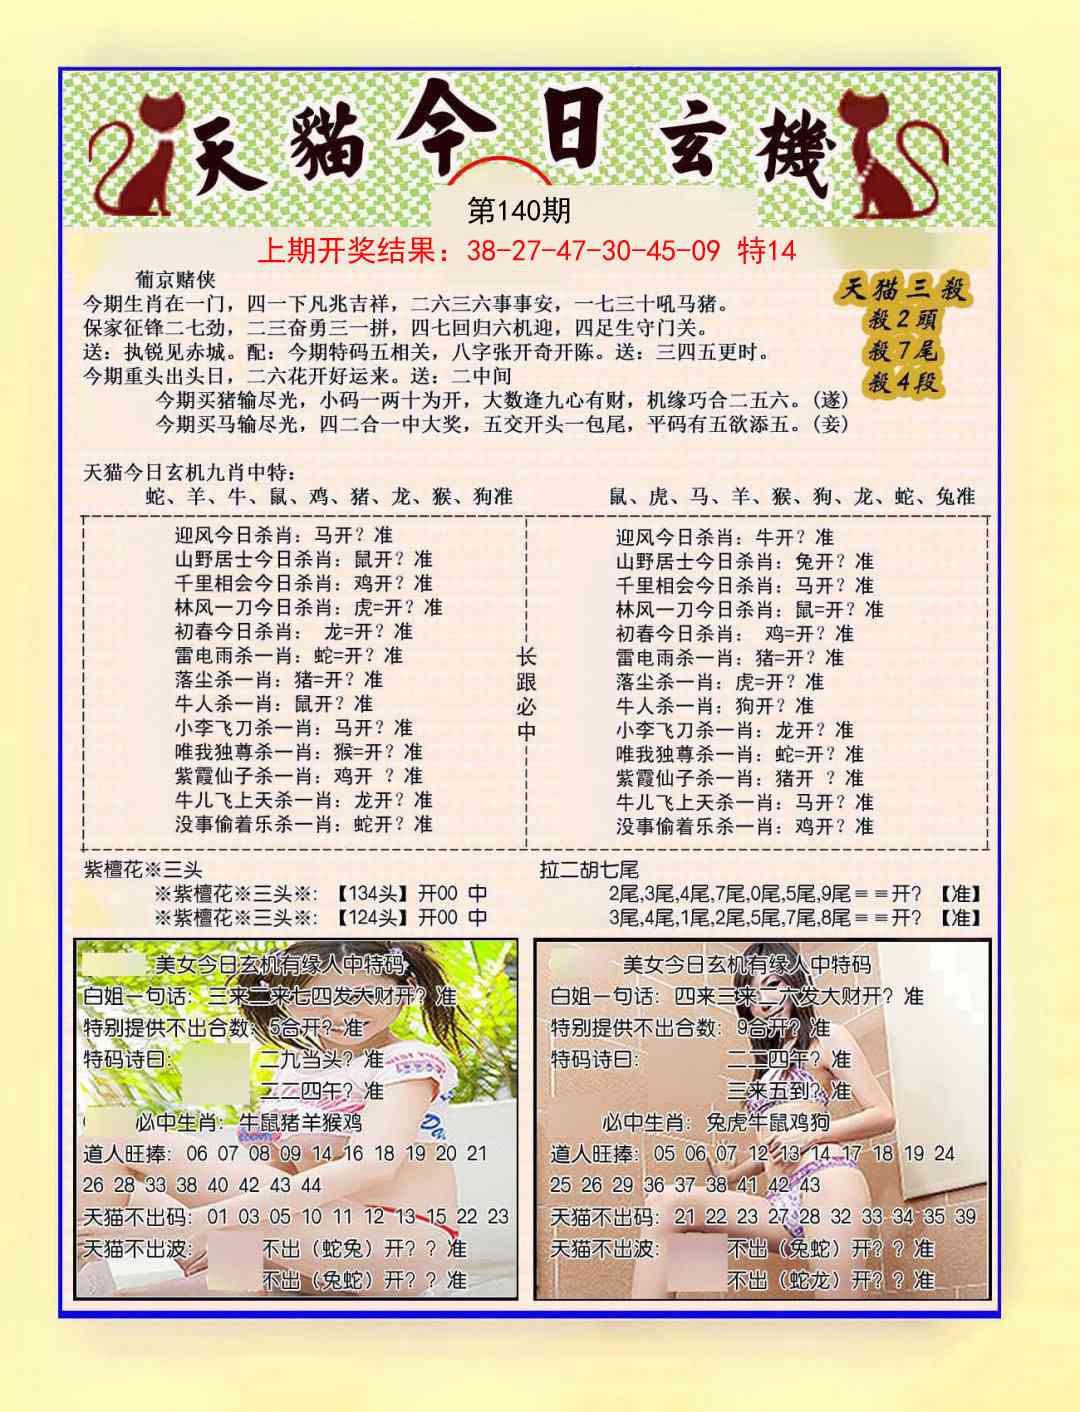 天貓今日玄機
第140期
上期开奖结果：38-27-47-30-45-09 特14
葡京赌侠
今期生肖在一门，四一下凡兆吉祥，二六三六事事安，一七三十吼马猪。
保家征锋二七劲，二三奋勇三一拼，四七回归六机迎，四足生守门关。
送：执锐见赤城。配：今期特码五相关，八字张开奇开陈。送：三四五更时。
今期重头出头日，二六花开好运来。送：二中间
今期买猪输尽光，小码一两十为开，大数逢九心有财，机缘巧合二五六。(遂)
今期买马输尽光，四二合一中大奖，五交开头一包尾，平码有五欲添五。(妾)
天猫三殺
殺2頭
殺7尾
殺4段
天猫今日玄机九肖中特：
蛇、羊、牛、鼠、鸡、猪、龙、猴、狗准
鼠、虎、马、羊、猴、狗、龙、蛇、兔准
迎风今日杀肖：马开？准
山野居士今日杀肖：鼠开？准
千里相会今日杀肖：鸡开？准
林风一刀今日杀肖：虎=开？准
初春今日杀肖： 龙=开？准
雷电雨杀一肖：蛇=开？准
落尘杀一肖：猪=开？准
牛人杀一肖：鼠开？准
小李飞刀杀一肖：马开？准
唯我独尊杀一肖：猴=开？准
紫霞仙子杀一肖：鸡开 ？准
牛儿飞上天杀一肖：龙开？准
没事偷着乐杀一肖：蛇开？准
长跟必中
迎风今日杀肖：牛开？准
山野居士今日杀肖：兔开？准
千里相会今日杀肖：马开？准
林风一刀今日杀肖：鼠=开？准
初春今日杀肖： 鸡=开？准
雷电雨杀一肖：猪=开？准
落尘杀一肖：虎=开？准
牛人杀一肖：狗开？准
小李飞刀杀一肖：龙开？准
唯我独尊杀一肖：蛇=开？准
紫霞仙子杀一肖：猪开 ？准
牛儿飞上天杀一肖：马开？准
没事偷着乐杀一肖：鸡开？准
紫檀花※三头
※紫檀花※三头※：【134头】开00 中
※紫檀花※三头※：【124头】开00 中
拉二胡七尾
2尾,3尾,4尾,7尾,0尾,5尾,9尾＝＝开？【准】
3尾,4尾,1尾,2尾,5尾,7尾,8尾＝＝开？【准】
美女今日玄机有缘人中特码
白姐一句话：三来二来七四发大财开？准
特别提供不出合数：5合开？准
特码诗曰： 二九当头？准
二二四午？准
必中生肖：牛鼠猪羊猴鸡
道人旺捧：06 07 08 09 14 16 18 19 20 21
26 28 33 38 40 42 43 44
天猫不出码：01 03 05 10 11 12 13 15 22 23
天猫不出波： 不出（蛇兔）开？？准
不出（兔蛇）开？？准
美女今日玄机有缘人中特码
白姐一句话：四来三来二六发大财开？准
特别提供不出合数：9合开？准
特码诗曰： 二二四午？准
三来五到？准
必中生肖：兔虎牛鼠鸡狗
道人旺捧：05 06 07 12 13 14 17 18 19 24
25 26 29 36 37 38 41 42 43
天猫不出码：21 22 23 27 28 32 33 34 35 39
天猫不出波： 不出（兔蛇）开？？准
不出（蛇龙）开？？准